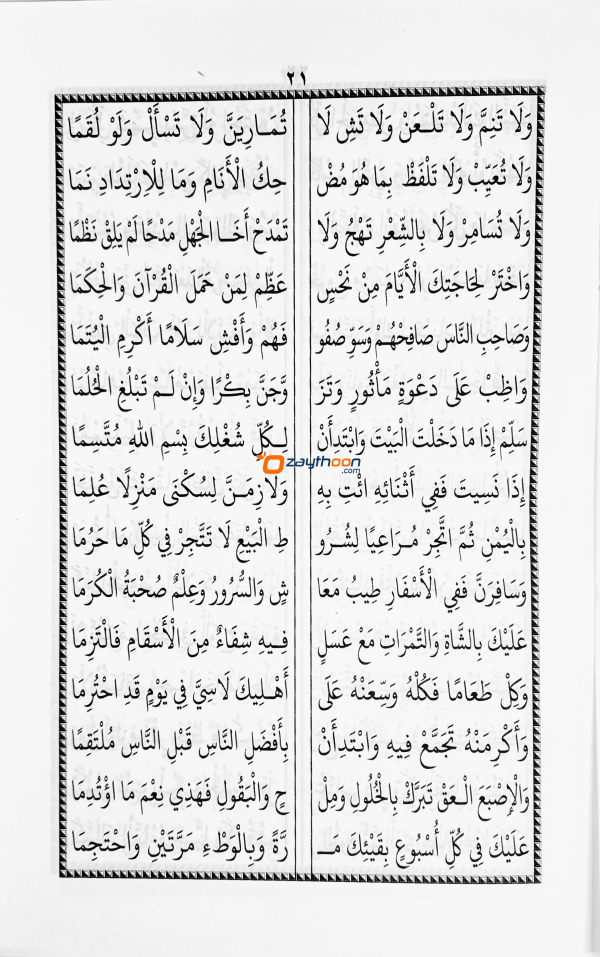 ٢١
وَلَا تَنِمَّ وَلَا تَلْعَنْ وَلَا تَشِ لَا تُمَارِيَنَّ وَلَا تَسْأَلْ وَلَوْ لُقَمًا
وَلَا تُعَيِّبْ وَلَا تَلْفَظْ بِمَا هُوَ مُضْ حِكُ الْأَنَامِ وَمَا لِلْاِرْتِدَادِ نَمَا
وَلَا تُسَامِرْ وَلَا بِالشِّعْرِ تَهْجُ وَلَا تَمْدَحْ أَخَا الْجَهْلِ مَدْحًا لَمْ يَلِقْ نَظْمًا
وَاخْتَرْ لِحَاجَتِكَ الْأَيَّامَ مِنْ نَحْسٍ عَظِّمْ لِمَنْ حَمَلَ الْقُرْآنَ وَالْحِكَمَا
وَصَاحِبِ النَّاسَ صَافِحْهُمْ وَسَوِّ صُفُو فَهُمْ وَأَفْشِ سَلَامًا أَكْرِمِ الْيُتَمَا
وَاظِبْ عَلَى دَعْوَةٍ مَأْثُورٍ وَتَزَ وَّجَنَّ بِكْرًا وَإِنْ لَمْ تَبْلُغِ الْحُلُمَا
سَلِّمْ إِذَا مَا دَخَلْتَ الْبَيْتَ وَابْتَدِأَنْ لِكُلِّ شُغْلِكَ بِسْمِ اللهِ مُتَّسِمًا
إِذَا نَسِيتَ فَفِي أَثْنَائِهِ ائْتِ بِهِ وَلَازِمَنَّ لِسُكْنَى مَنْزِلًا عُلِمَا
بِالْيُمْنِ ثُمَّ اتَّجِرْ مُرَاعِيًا لِشُرُو طِ الْبَيْعِ لَا تَتَّجِرْ فِي كُلِّ مَا حَرُمَا
وَسَافِرَنَّ فَفِي الْأَسْفَارِ طِيبُ مَعَا شٍ وَالسُّرُورُ وَعِلْمٌ صُحْبَةُ الْكُرَمَا
عَلَيْكَ بِالشَّاةِ وَالتَّمْرَاتِ مَعْ عَسَلٍ فِيهِ شِفَاءٌ مِنَ الْأَسْقَامِ فَالْتَزِمَا
وَكِلْ طَعَامًا فَكُلْهُ وَسِّعَنْهُ عَلَى أَهْلِيكَ لَاسِيَّ فِي يَوْمٍ قَدِ احْتُرِمَا
وَأَكْرِمَنْهُ تَجَمَّعْ فِيهِ وَابْتَدِأَنْ بِأَفْضَلِ النَّاسِ قَبْلِ النَّاسِ مُلْتَقِمًا
وَالْإِصْبَعَ الْعَقْ تَبَرَّكْ بِالْخُلُولِ وَمِلْ حٍ وَالْبَقُولِ فَهَذِي نِعْمَ مَا اؤْتُدِمَا
عَلَيْكَ فِي كُلِّ أُسْبُوعٍ بِقَيْئِكَ مَـ رَّةً وَبِالْوَطْءِ مَرَّتَيْنِ وَاحْتَجِمَا
zaythoon
.com